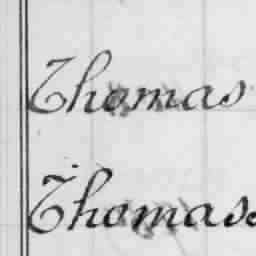 Thomas
Thomas.